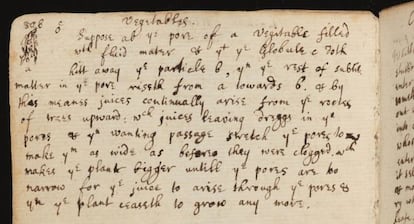 Vegetables.
Suppose ab yᵉ pore of a Vegitable filled
wᵗʰ fluid mater & yᵗ yᵉ Globule c doth
hitt away yᵉ particle b, yⁿ yᵉ rest of subtile
matter in yᵉ pore riseth from a towards b. & by
this means juices continually arise from yᵉ roots
of trees upward; wᶜʰ juices leaving dreggs in yᵉ
pores & yⁿ wanting passage stretch yᵉ pores to
make yᵐ as wide as before they were clogged. wᶜʰ
makes yᵉ plant bigger untill yᵉ pores are too
narrow for yᵉ juice to arise through yᵉ pores &
yⁿ yᵉ plant ceaseth to grow any more.